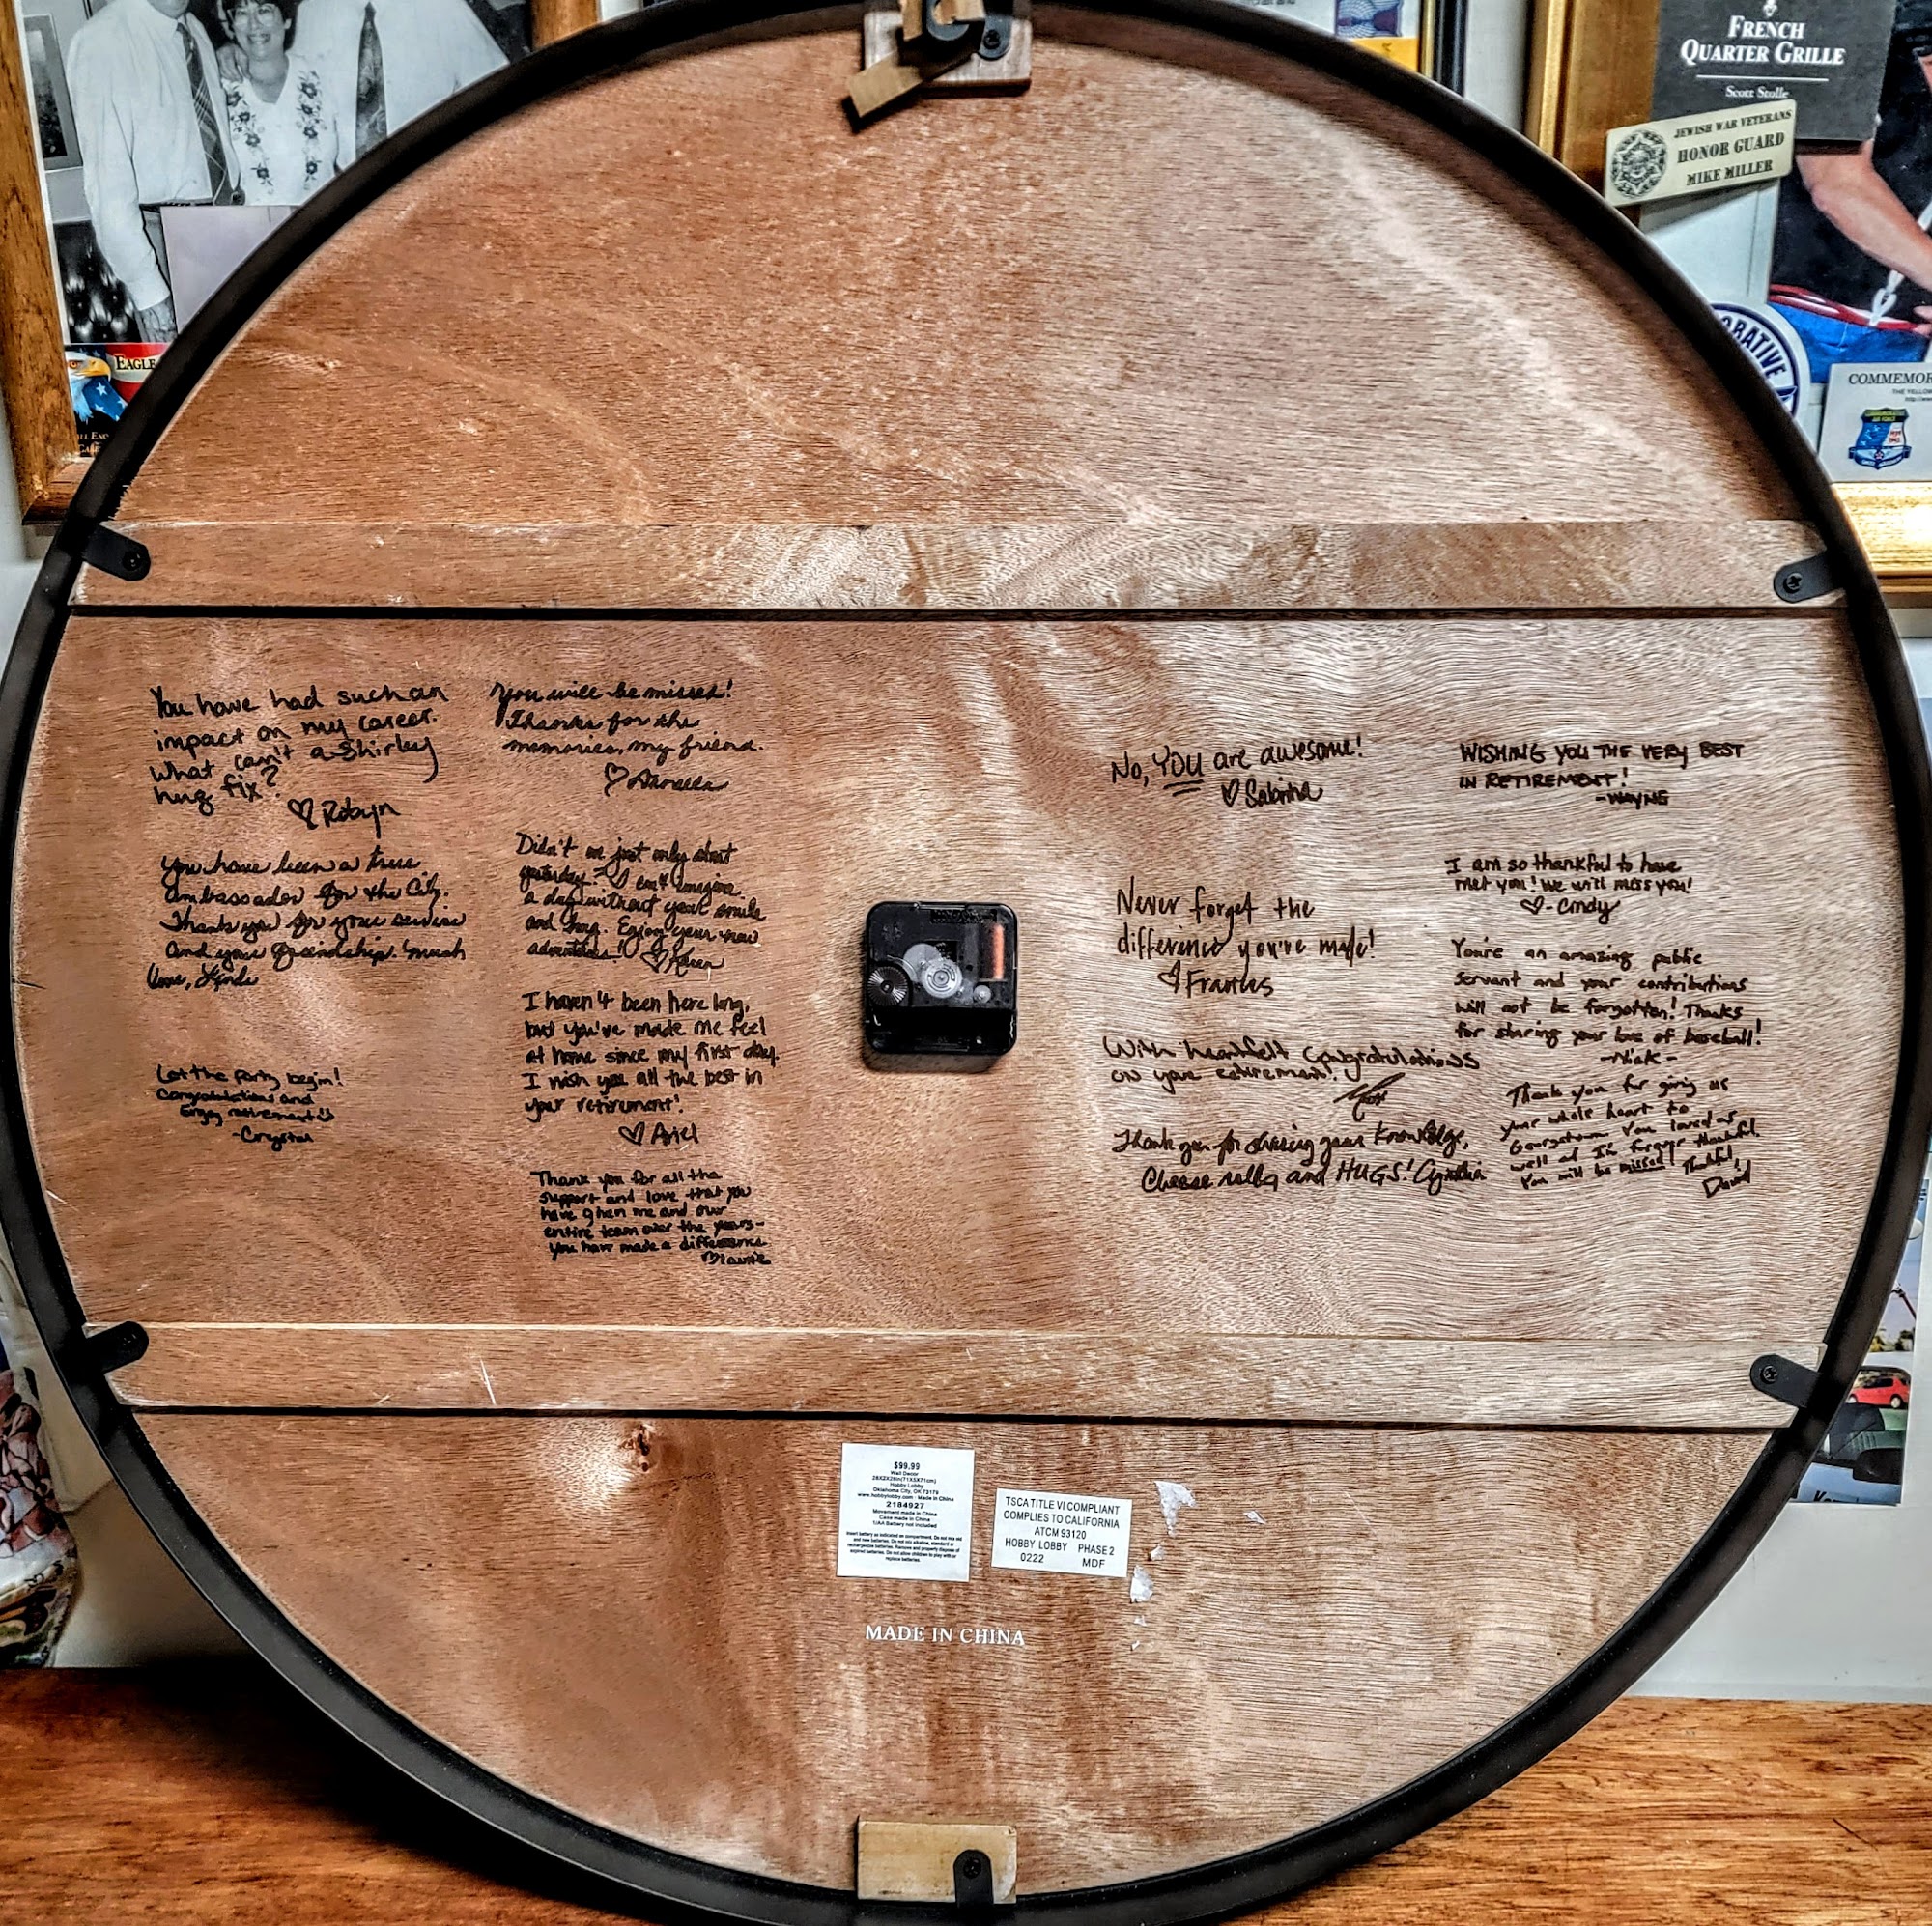 FRENCH
QUARTER GRILLE
Scott Stolle
JEWISH WAR VETERANS
HONOR GUARD
MIKE MILLER
EAGLE
COMMEMOR
You have had such an
impact on my career.
What can't a Shirley
hug fix?
♡ Robyn
You have been a true
ambassador for the City.
Thank you for your service
and your friendship. Much
love, Linda
Let the party begin!
Congratulations and
Enjoy retirement ☺
-Crystal
You will be missed!
Thanks for the
memories, my friend.
Didn't we just only start
yesterday? I can't imagine
a day without your smile
and hug. Enjoy your new
adventures! ♡ Karen
I haven't been here long,
but you've made me feel
at home since my first day.
I wish you all the best in
your retirement!
♡ Ariel
Thank you for all the
support and love that you
have given me and our
entire team over the years-
you have made a difference
♡ Laurie
No, YOU are awesome!
♡ Sabrina
Never forget the
difference you've made!
♡ Frances
With heartfelt Congratulations
on your retirement!
Thank you for sharing your knowledge,
Cheese and HUGS! Cynthia
WISHING YOU THE VERY BEST
IN RETIREMENT!
-WAYNE
I am so thankful to have
met you! We will miss you!
♡-Cindy
You're an amazing public
servant and your contributions
will not be forgotten! Thanks
for sharing your love of baseball!
-Nick-
Thank you for giving us
your whole heart to
Georgetown. You loved us
well and I'm forever thankful.
You will be missed! Thankful,
David
$99.99
Wall Decor
28X2X28in(71X5X71cm)
Hobby Lobby
Oklahoma City, OK 73179
www.hobbylobby.com Made in China
2184927
Movement made in China
Case made in China
1/AA Battery not included
Insert battery as indicated on compartment. Do not mix old
and new batteries. Do not mix alkaline, standard or
rechargeable batteries. Remove and properly dispose of
expired batteries. Do not allow children to play with or
replace batteries.
TSCA TITLE VI COMPLIANT
COMPLIES TO CALIFORNIA
ATCM 93120
HOBBY LOBBY PHASE 2
0222 MDF
MADE IN CHINA